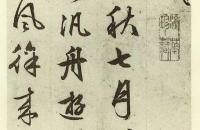 秋七月
汎舟遊
風徐来